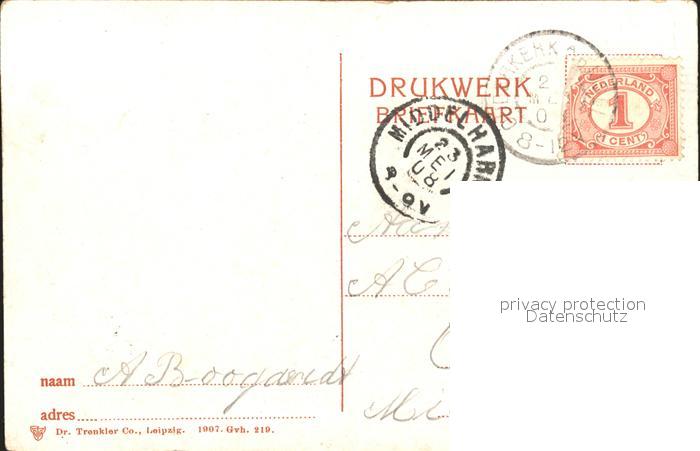 DRUKWERK
BRIEFKAART
NEDERLAND
1
1 CENT
MIDDELHAR
23
MEI
08
8-9V
2
8-12
privacy protection
Datenschutz
A C
naam A Boogaerdt
Mi
adres
Dr. Trenkler Co., Leipzig. 1907. Gvh. 219.